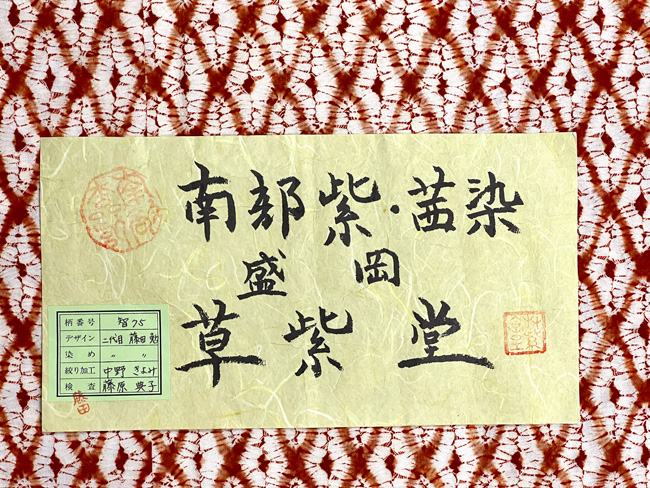 南部紫・茜染
盛岡
草紫堂
柄番号 智75
デザイン 二代目 藤田 勉
染め 〃 〃
絞り加工 中野 きよみ
検査 藤原 典子
藤田